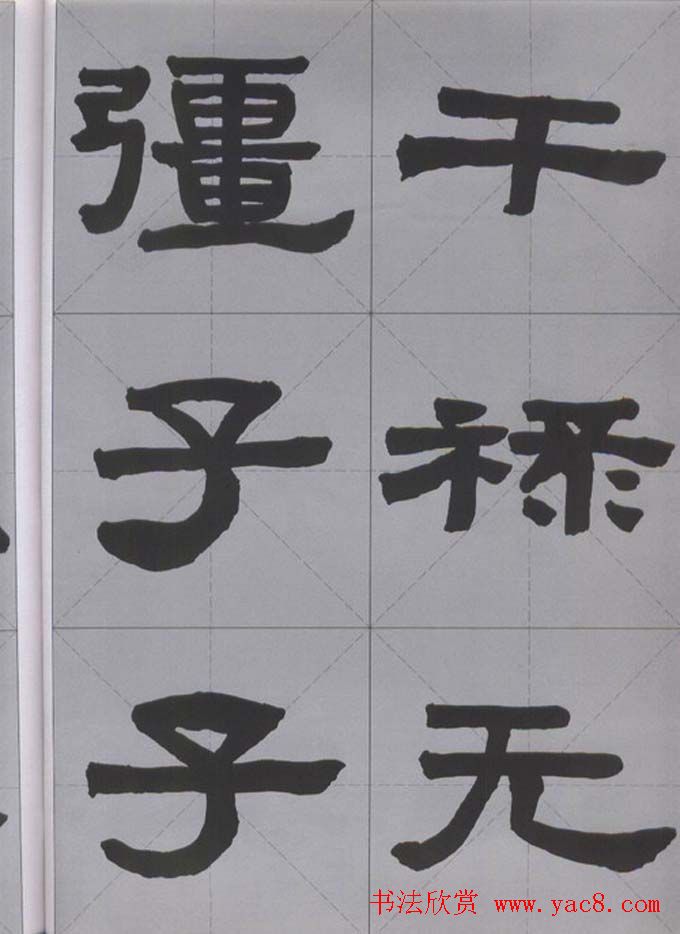 干禄无
彊子子
书法欣赏 www.yac8.com